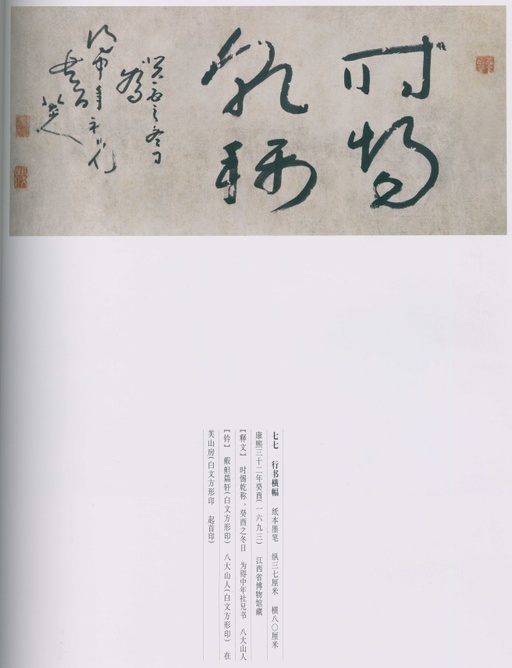 时惕
乾称
癸酉之冬日
为
得中年社兄
书 八大山人
七七 行书横幅 纸本墨笔 纵三七厘米 横八〇厘米
康熙三十二年癸酉(一六九三) 江西省博物馆藏
【释文】 时惕乾称。癸酉之冬日 为得中年社兄书 八大山人
【钤】 (白文方形印) 八大山人(白文方形印) 在
芙山房(白文方形印 起首印)